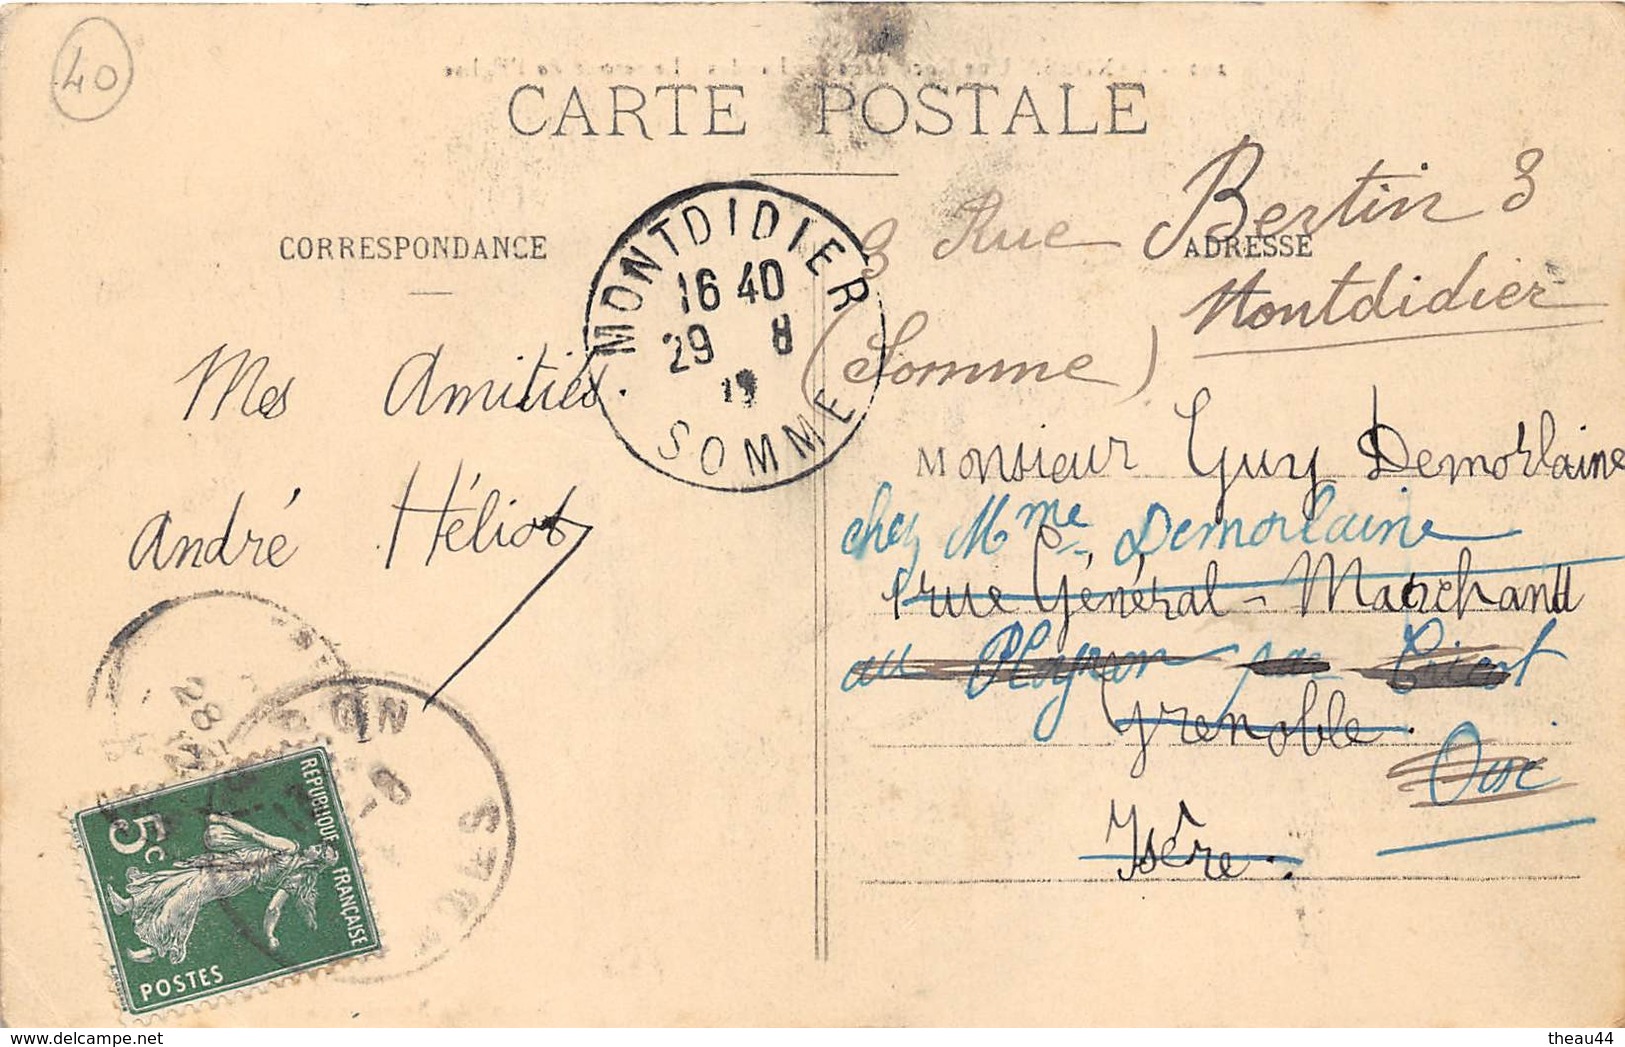 40
CARTE POSTALE
CORRESPONDANCE
ADRESSE
MONTDIDIER
16 40
29 8
SOMME
3 Rue Bertin 3
Montdidier
(Somme)
Mes Amitiés.
André Héliot
Monsieur Guy Demorlaine
chez Mme Demorlaine
1 rue Général-Marchand
au par
Grenoble.
Oise
Isère.
28
5c
REPUBLIQUE FRANÇAISE
POSTES
delcampe.net
theau44